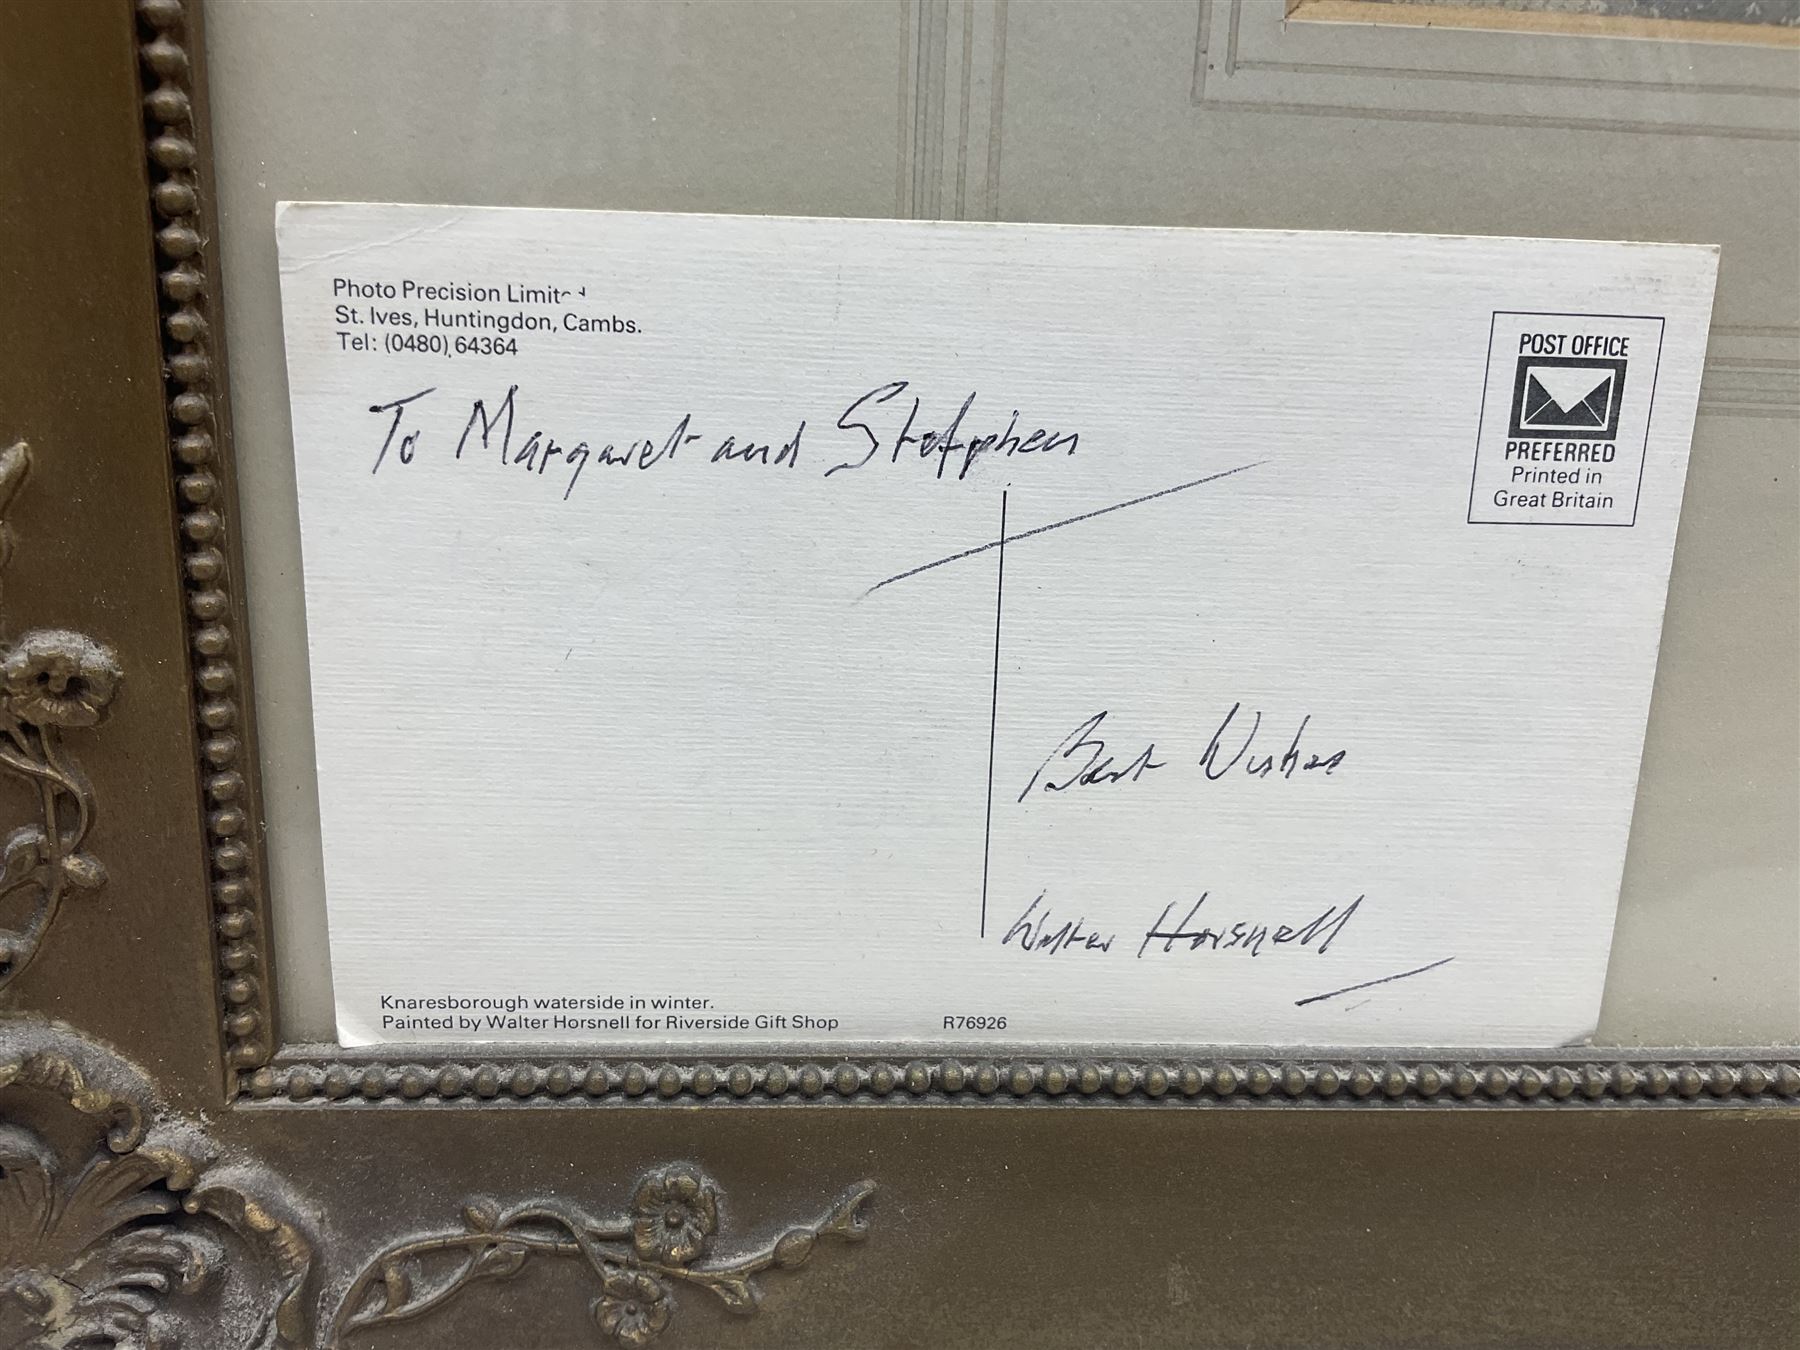 Photo Precision Limited
St. Ives, Huntingdon, Cambs.
Tel: (0480) 64364
POST OFFICE
PREFERRED
Printed in
Great Britain
To Margaret and Stephen
Best Wishes
Walter Horsnell
Knaresborough waterside in winter.
Painted by Walter Horsnell for Riverside Gift Shop
R76926